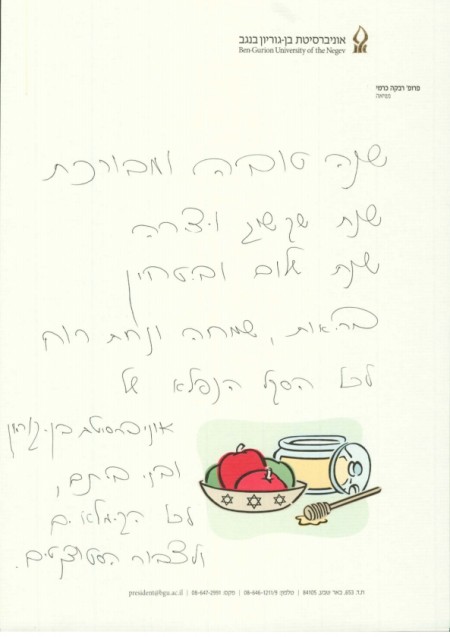 אוניברסיטת בן-גוריון בנגב
Ben-Gurion University of the Negev
פרופ' רבקה כרמי
נשיאה
שנה טובה ומבורכת
שנת שגשוג ויצירה
שנת שלום ובטחון
בריאות, שמחה ונחת רוח
לכל הסגל הנפלא של
אוניברסיטת בן-גוריון
ובני ביתם,
לכל הגימלאים
ולציבור הסטודנטים.
ת.ד. 653, באר שבע, 84105 | טלפון: 08-646-1211/9 | פקס: 08-647-2991 | president@bgu.ac.il